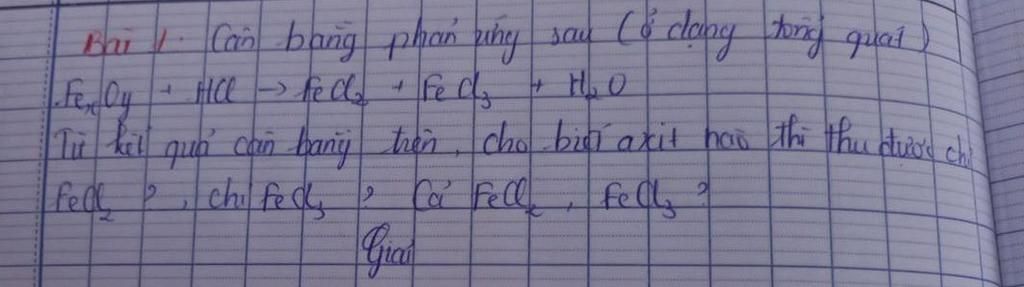 Bài 1. Cân bằng phản ứng sau (ở dạng tổng quát)
FexOy + HCl → FeCl2 + FeCl3 + H2O
Từ kết quả cân bằng trên, cho biết oxit nào thì thu được chỉ
FeCl2 ?, chỉ FeCl3 ? Cả FeCl2, FeCl3 ?
Giải